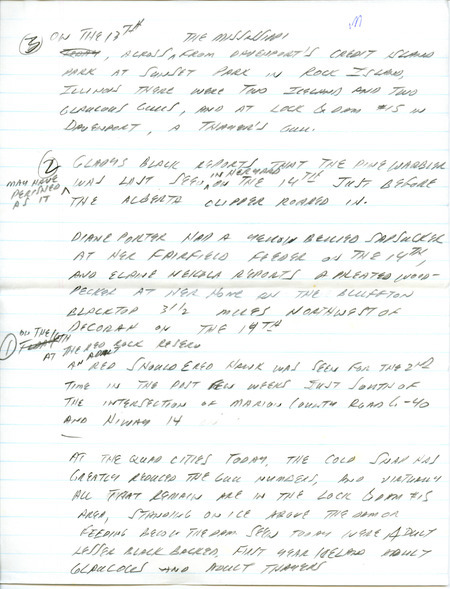 ③ ON THE 17TH THE MISSISSIPPI
TODAY, ACROSS, FROM DAVENPORT'S CREDIT ISLAND
PARK AT SUNSET PARK IN ROCK ISLAND,
ILLINOIS THERE WERE TWO ICELAND AND TWO
GLAUCOUS GULLS, AND AT LOCK & DAM #15 IN
DAVENPORT, A THAYER'S GULL.
② GLADYS BLACK REPORTS THAT THE PINE WARBLER
IN HER YARD
WAS LAST SEEN ON THE 14TH JUST BEFORE
MAY HAVE
PERISHED
AS IT
THE ALBERTA CLIPPER ROARED IN.
DIANE PORTER HAD A YELLOW BELLIED SAPSUCKER
AT HER FAIRFIELD FEEDER ON THE 14TH,
AND ELAINE NEKOLA REPORTS A PILEATED WOOD-
PECKER AT HER HOME ON THE BLUFFTON
BLACKTOP 3 1/2 MILES NORTHWEST OF
DECORAH ON THE 19TH
① ON THE
AT THE RED ROCK RESERV
ADULT
AN RED SHOULDERED HAWK WAS SEEN FOR THE 2ND
TIME IN THE PAST FEW WEEKS JUST SOUTH OF
THE INTERSECTION OF MARION COUNTY ROAD G-40
AND HIWAY 14
AT THE QUAD CITIES TODAY, THE COLD SNAP HAS
GREATLY REDUCED THE GULL NUMBERS, AND VIRTUALLY
ALL THAT REMAIN ARE IN THE LOCK & DAM #15
AREA, STANDING ON ICE ABOVE THE DAM OR
FEEDING BELOW THE DAM SEEN TODAY WERE ADULT
LESSER BLACK BACKED, FIRST YEAR ICELAND ADULT
GLAUCOUS AND ADULT THAYERS